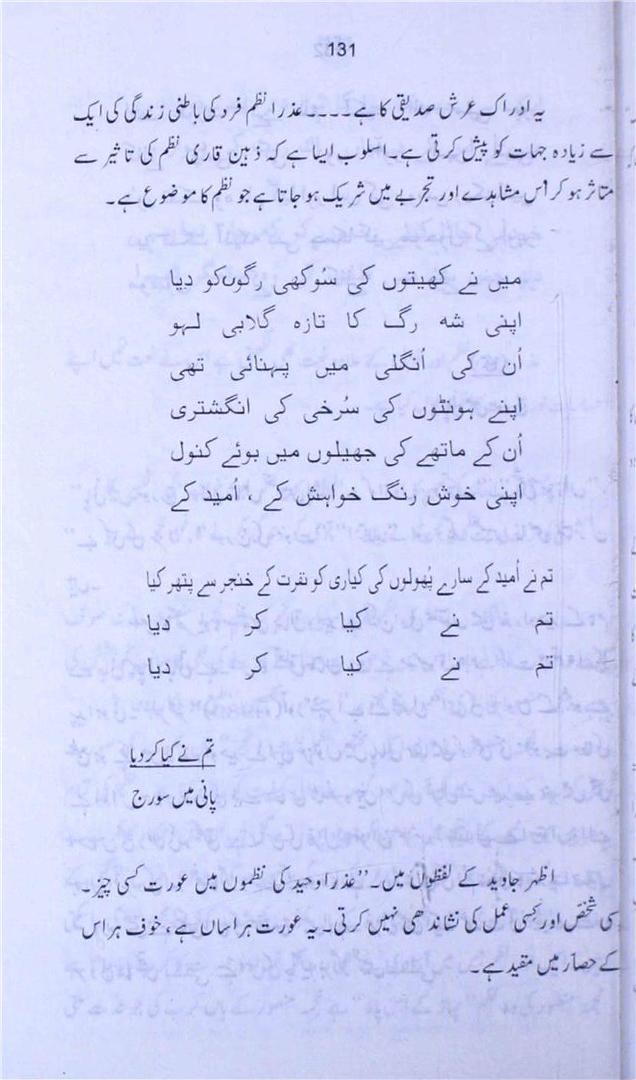 131
یہ ادراک عرش صدیقی کا ہے ۔۔۔۔ عذرا نظم فرد کی باطنی زندگی کی ایک
سے زیادہ جہات کو پیش کرتی ہے۔ اسلوب ایسا ہے کہ ذہین قاری نظم کی تاثیر سے
متاثر ہو کر اُس مشاہدے اور تجربے میں شریک ہو جاتا ہے جو نظم کا موضوع ہے۔
میں نے کھیتوں کی سُوکھی رگوں کو دیا
اپنی شہ رگ کا تازہ گلابی لہو
اُن کی اُنگلی میں پہنائی تھی
اپنے ہونٹوں کی سُرخی کی انگشتری
اُن کے ماتھے کی جھیلوں میں بوئے کنول
اپنی خوش رنگ خواہش کے ، اُمید کے
تم نے اُمید کے سارے پُھولوں کی کیاری کو نفرت کے خنجر سے پتھر کیا
تم نے کیا کر دیا
تم نے کیا کر دیا
تم نے کیا کر دیا
پانی میں سورج
اظہر جاوید کے لفظوں میں۔ ”عذرا وحید کی نظموں میں عورت کسی چیز۔
کسی شخص اور کسی عمل کی نشاندھی نہیں کرتی۔ یہ عورت ہراساں ہے، خوف ہراس
کے حصار میں مقید ہے۔